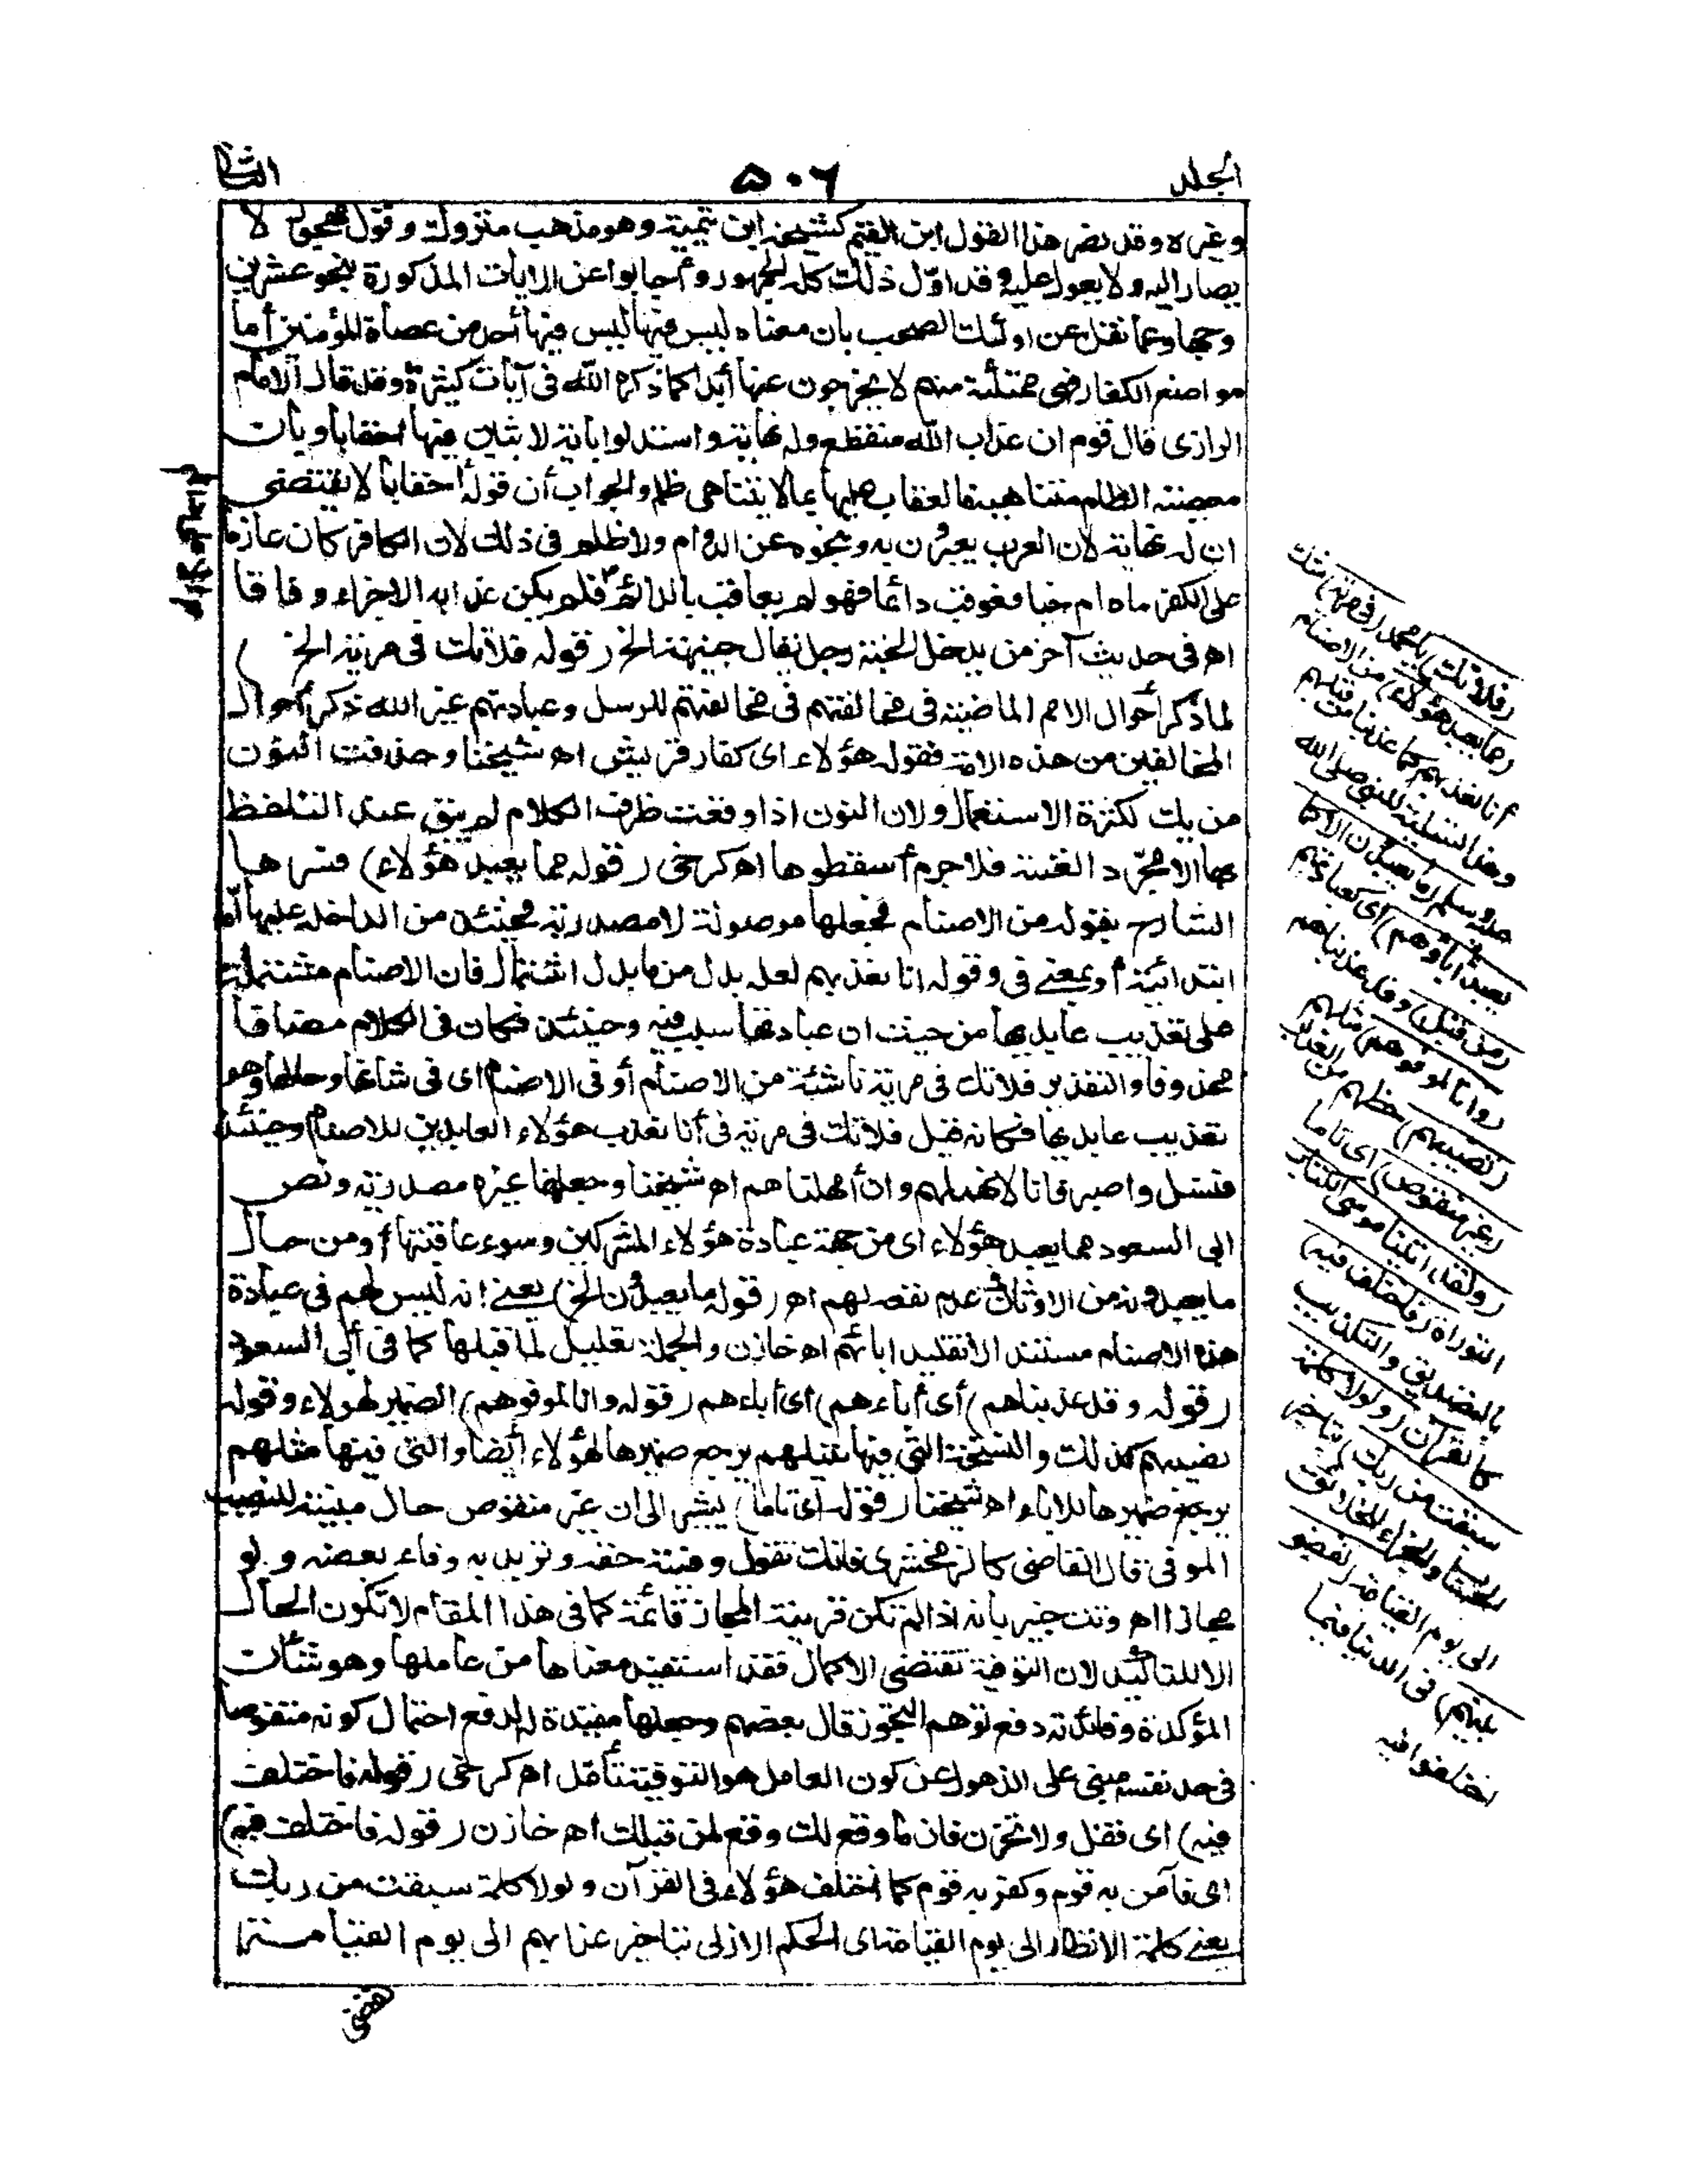 الجلد
٥٠٦
الثانى
وغيره وقد نصر هذا القول ابن القيم كشيخه ابن تيمية وهو مذهب متروك وقول مهجور لا
يصار اليه ولا يعول عليه وقد اوّل ذلك كله الجمهور وأجابوا عن الايات المذكورة بنحو عشرين
وجها وعما نقل عن اولئك الصحب بان معناه ليس فيها ليس فيها أحد من عصاة المؤمنين أما
مواضع الكفار فهى ممتلئة منهم لا يخرجون عنها أبدا كما ذكره الله فى آيات كثيرة وقد قال الامام
الرازى قال قوم ان عذاب الله منقطع وله نهاية واستدلوا باية لا بثين فيها احقابا وبأن
معصية الظالم متناهية فالعقاب عليها بما لا يتناهى ظلم والجواب أن قوله أحقابا لا يقتضى
ان له نهاية لان العرب يعبرون به وبنحوه عن الدوام ولا ظلم فى ذلك لان الكافر كان عازما
على الكفر مادام حيا فعوقب دائما فهو لم يعاقب بالدائم فلم يكن عذابه الا جزاء وفاقا
اه فى حديث آخر من يدخل الجنة رجل يقال جهينة الخ (قوله فلا تك فى مرية الخ)
لما ذكر أحوال الامم الماضية فى مخالفتهم فى مخالفتهم للرسل وعبادتهم غير الله ذكر أحوال
المخالفين من هذه الامة فقوله هؤلاء اى كفار قريش اه شيخنا وحذفت النون
من يك لكثرة الاستعمال ولان النون اذا وقعت طرف الكلام لم يبق عند التلفظ
بها الا مجرّد الغنة فلا جرم أسقطوها اه كرخى (قوله مما يعبد هؤلاء) فسرها
الشارح بقوله من الاصنام فجعلها موصولة لا مصدرية فحينئذ من الداخلة عليها امّا
ابتدائية أو بمعنى فى وقوله انا نعذبهم لعله بدل من ما بدل اشتمال فان الاصنام مشتملة
على تعذيب عابديها من حيث ان عبادتها سبب فيه وحينئذ فكان فى الكلام مضافا
محذوفا والتقدير فلا تك فى مرية ناشئة من الاصنام أو فى الاصنام اى فى شانها وحالها وهو
تعذيب عابديها فكانه قيل فلا تك فى مرية فى أنا نعذب هؤلاء العابدين للاصنام وحينئذ
فتسل واصبر فانا لا نهملهم وان أمهلناهم اه شيخنا وجعلها غيره مصدرية ونص
ابى السعود مما يعبد هؤلاء اى من جهة عبادة هؤلاء المشركين وسوء عاقبتها أو من حال
ما يعبدونه من الاوثان فى عدم نفعه لهم اه (قوله ما يعبدون الخ) يعنى انه ليس لهم فى عبادة
هذه الاصنام مستند الا تقليد ابائهم اه خازن والجملة تعليل لما قبلها كما فى أبى السعود
(قوله وقد عذبناهم) أى أباءهم) اى أباءهم (قوله وانا لموفوهم) الضمير لهؤلاء وقوله
نصيبهم كذلك والنسخة التى فيها مثلهم يرجع ضميرها لهؤلاء أيضا والتى فيها مثلهم
يرجع ضميرها للاباء اه شيخنا (قوله اى تاما) يشير الى ان غير منقوص حال مبينة للنصيب
الموفى قال القاضى كالزمخشرى فانك تقول وفيته حقه وتريد به وفاء بعضه ولو
مجازا اه وانت خبير بأنه اذا لم تكن قرينة المجاز قائمة كما فى هذا المقام لا تكون الحال
الا للتاكيد لان التوفية تقتضى الاكمال فقد استفيد معناها من عاملها وهو شأن
المؤكدة وفائدته دفع توهم التجوز قال بعضهم وجعلها مقيدة له لدفع احتمال كونه منقوصا
فى حد نفسه مبنى على الذهول عن كون العامل هو التوفية تأمل اه كرخى (قوله فاختلف
فيه) اى فقل ولا تحزن فان ما وقع لك وقع لمن قبلك اه خازن (قوله فاختلف فيه)
اى فآمن به قوم وكفر به قوم كما اختلف هؤلاء فى القرآن ولولا كلمة سبقت من ربك
يعنى كلمة الانظار الى يوم القيامة اى الحكم الازلى بتاخير عذابهم الى يوم القيامة
(فلا تك) يا محمد (فى مرية) شك
(مما يعبد هؤلاء) من الاصنام
أنا نعذبهم كما عذبنا من قبلهم
وهذا تسلية للنبى صلى الله
عليه وسلم (ما يعبدون الا كما
يعبد أباؤهم) اى كعبادتهم
(من قبل) وقد عذبناهم
(وانا لموفوهم) مثلهم
(نصيبهم) حظهم من العذاب
(غير منقوص) اى تاما
(ولقد اتينا موسى الكتاب)
التوراة (فاختلف فيه)
بالتصديق والتكذيب
كالقرآن (ولولا كلمة
سبقت من ربك) بتاخير
الحساب والجزاء للخلائق
الى يوم القيامة (لقضى
بينهم) فى الدنيا فيما
اختلفوا فيه